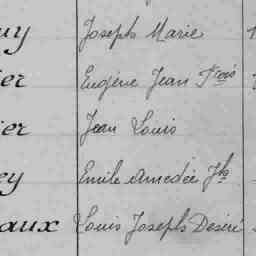 uy Joseph Marie
ier Eugène Jean Frois
ier Jean Louis
ey Emile Amedée Jh
aux Louis Joseph Desiré